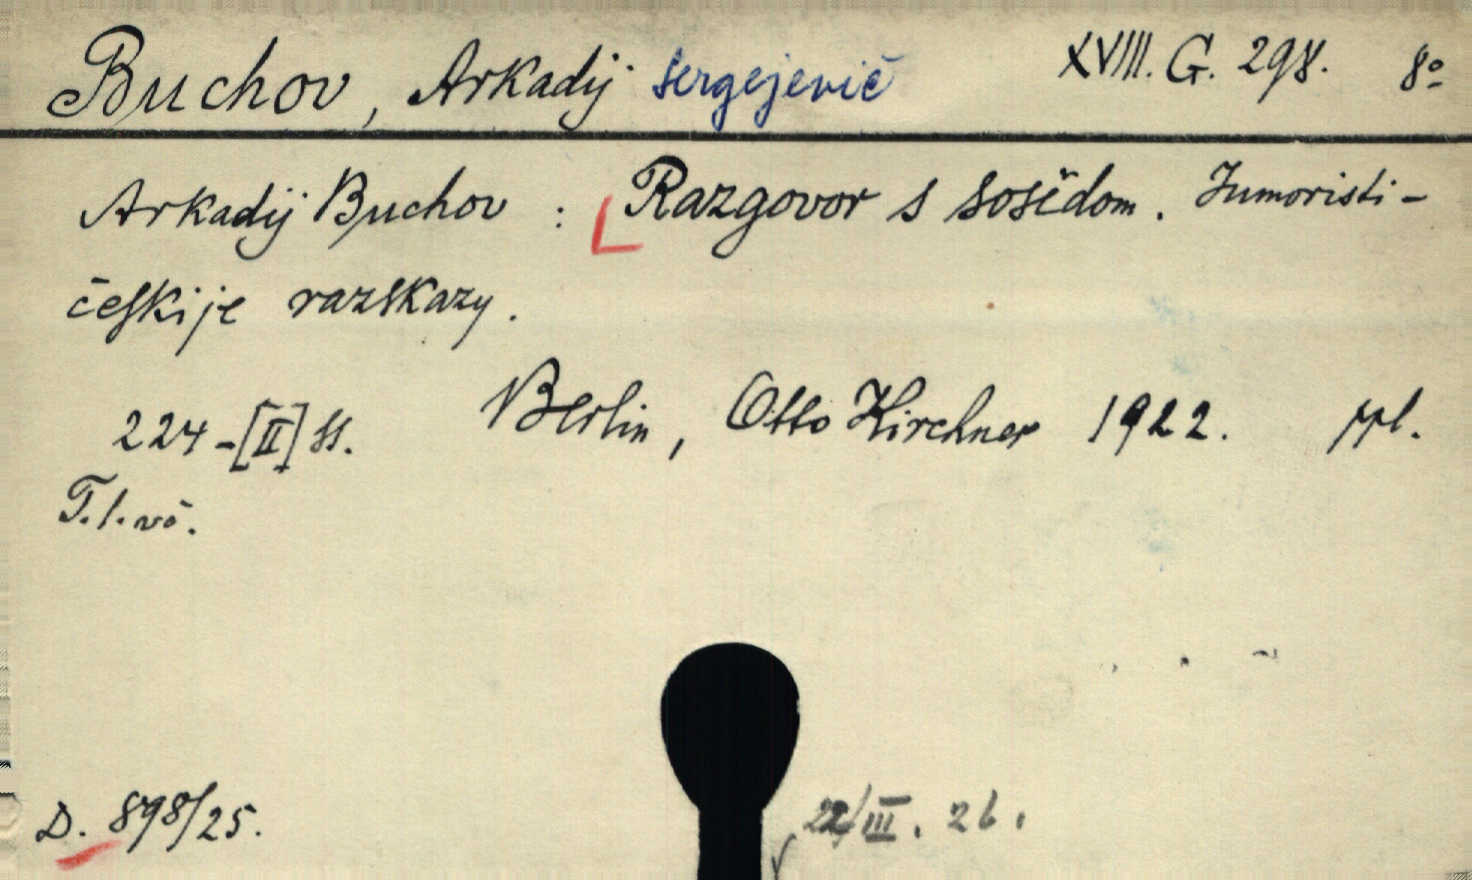 Buchov, Arkadij Sergejevič XVIII. G. 298. 8°
Arkadij Buchov : Razgovor s sosědom. Jumoristi-
českije razskazy.
224-[II] ss. Berlin, Otto Kirchner 1922. ppl.
T.l.vč.
D. 898/25. 22/III. 26.